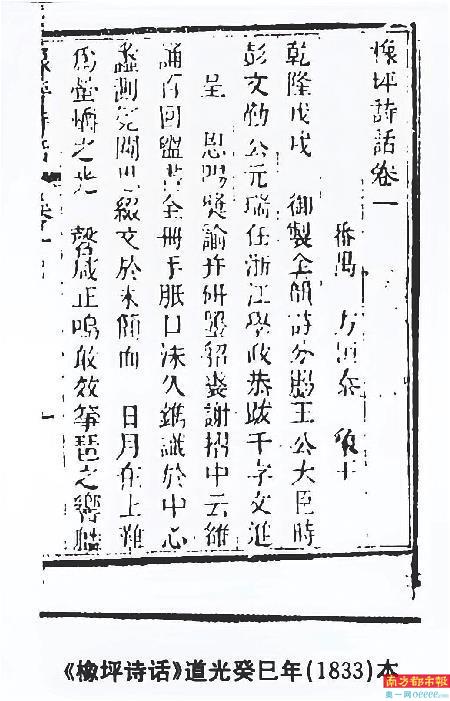 橡坪詩話卷一
番禺 方恒泰
乾隆戊戌 御製全韻詩分賜王公大臣時
彭文勤公元瑞任浙江學政恭跋千字文進
呈 恩賜獎諭并研墨貂裘謝摺中云維
誦百回盥書全冊手胝口沫久鐫識於中心
蠡測筦闚思綴文於末簡而 日月在上難
爲螢爝之光 咸正鳴敢效箏琶之響
橡坪詩話 卷一 一
《橡坪诗话》道光癸巳年(1833)本
南方都市報
奥一网 oeeee.com